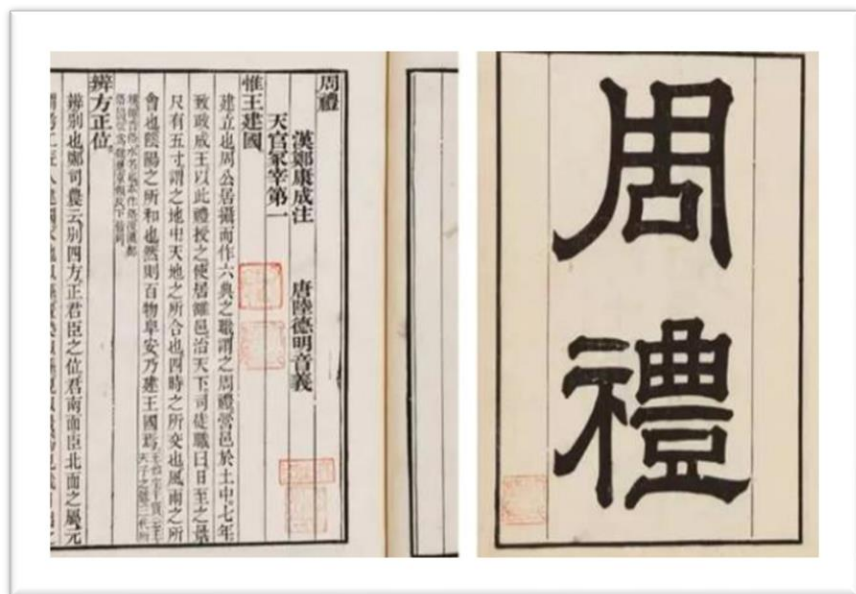 周禮
周禮
漢鄭康成注 唐陸德明音義
天官冢宰第一
惟王建國
建立也周公居攝而作六典之職謂之周禮營邑於土中七年
致政成王以此禮授之使居雒邑治天下司徒職曰日至之景
尺有五寸謂之地中天地之所合也四時之所交也風雨之所
會也陰陽之所和也然則百物阜安乃建王國焉
辨方正位
辨別也鄭司農云別四方正君臣之位君南面臣北面之屬元